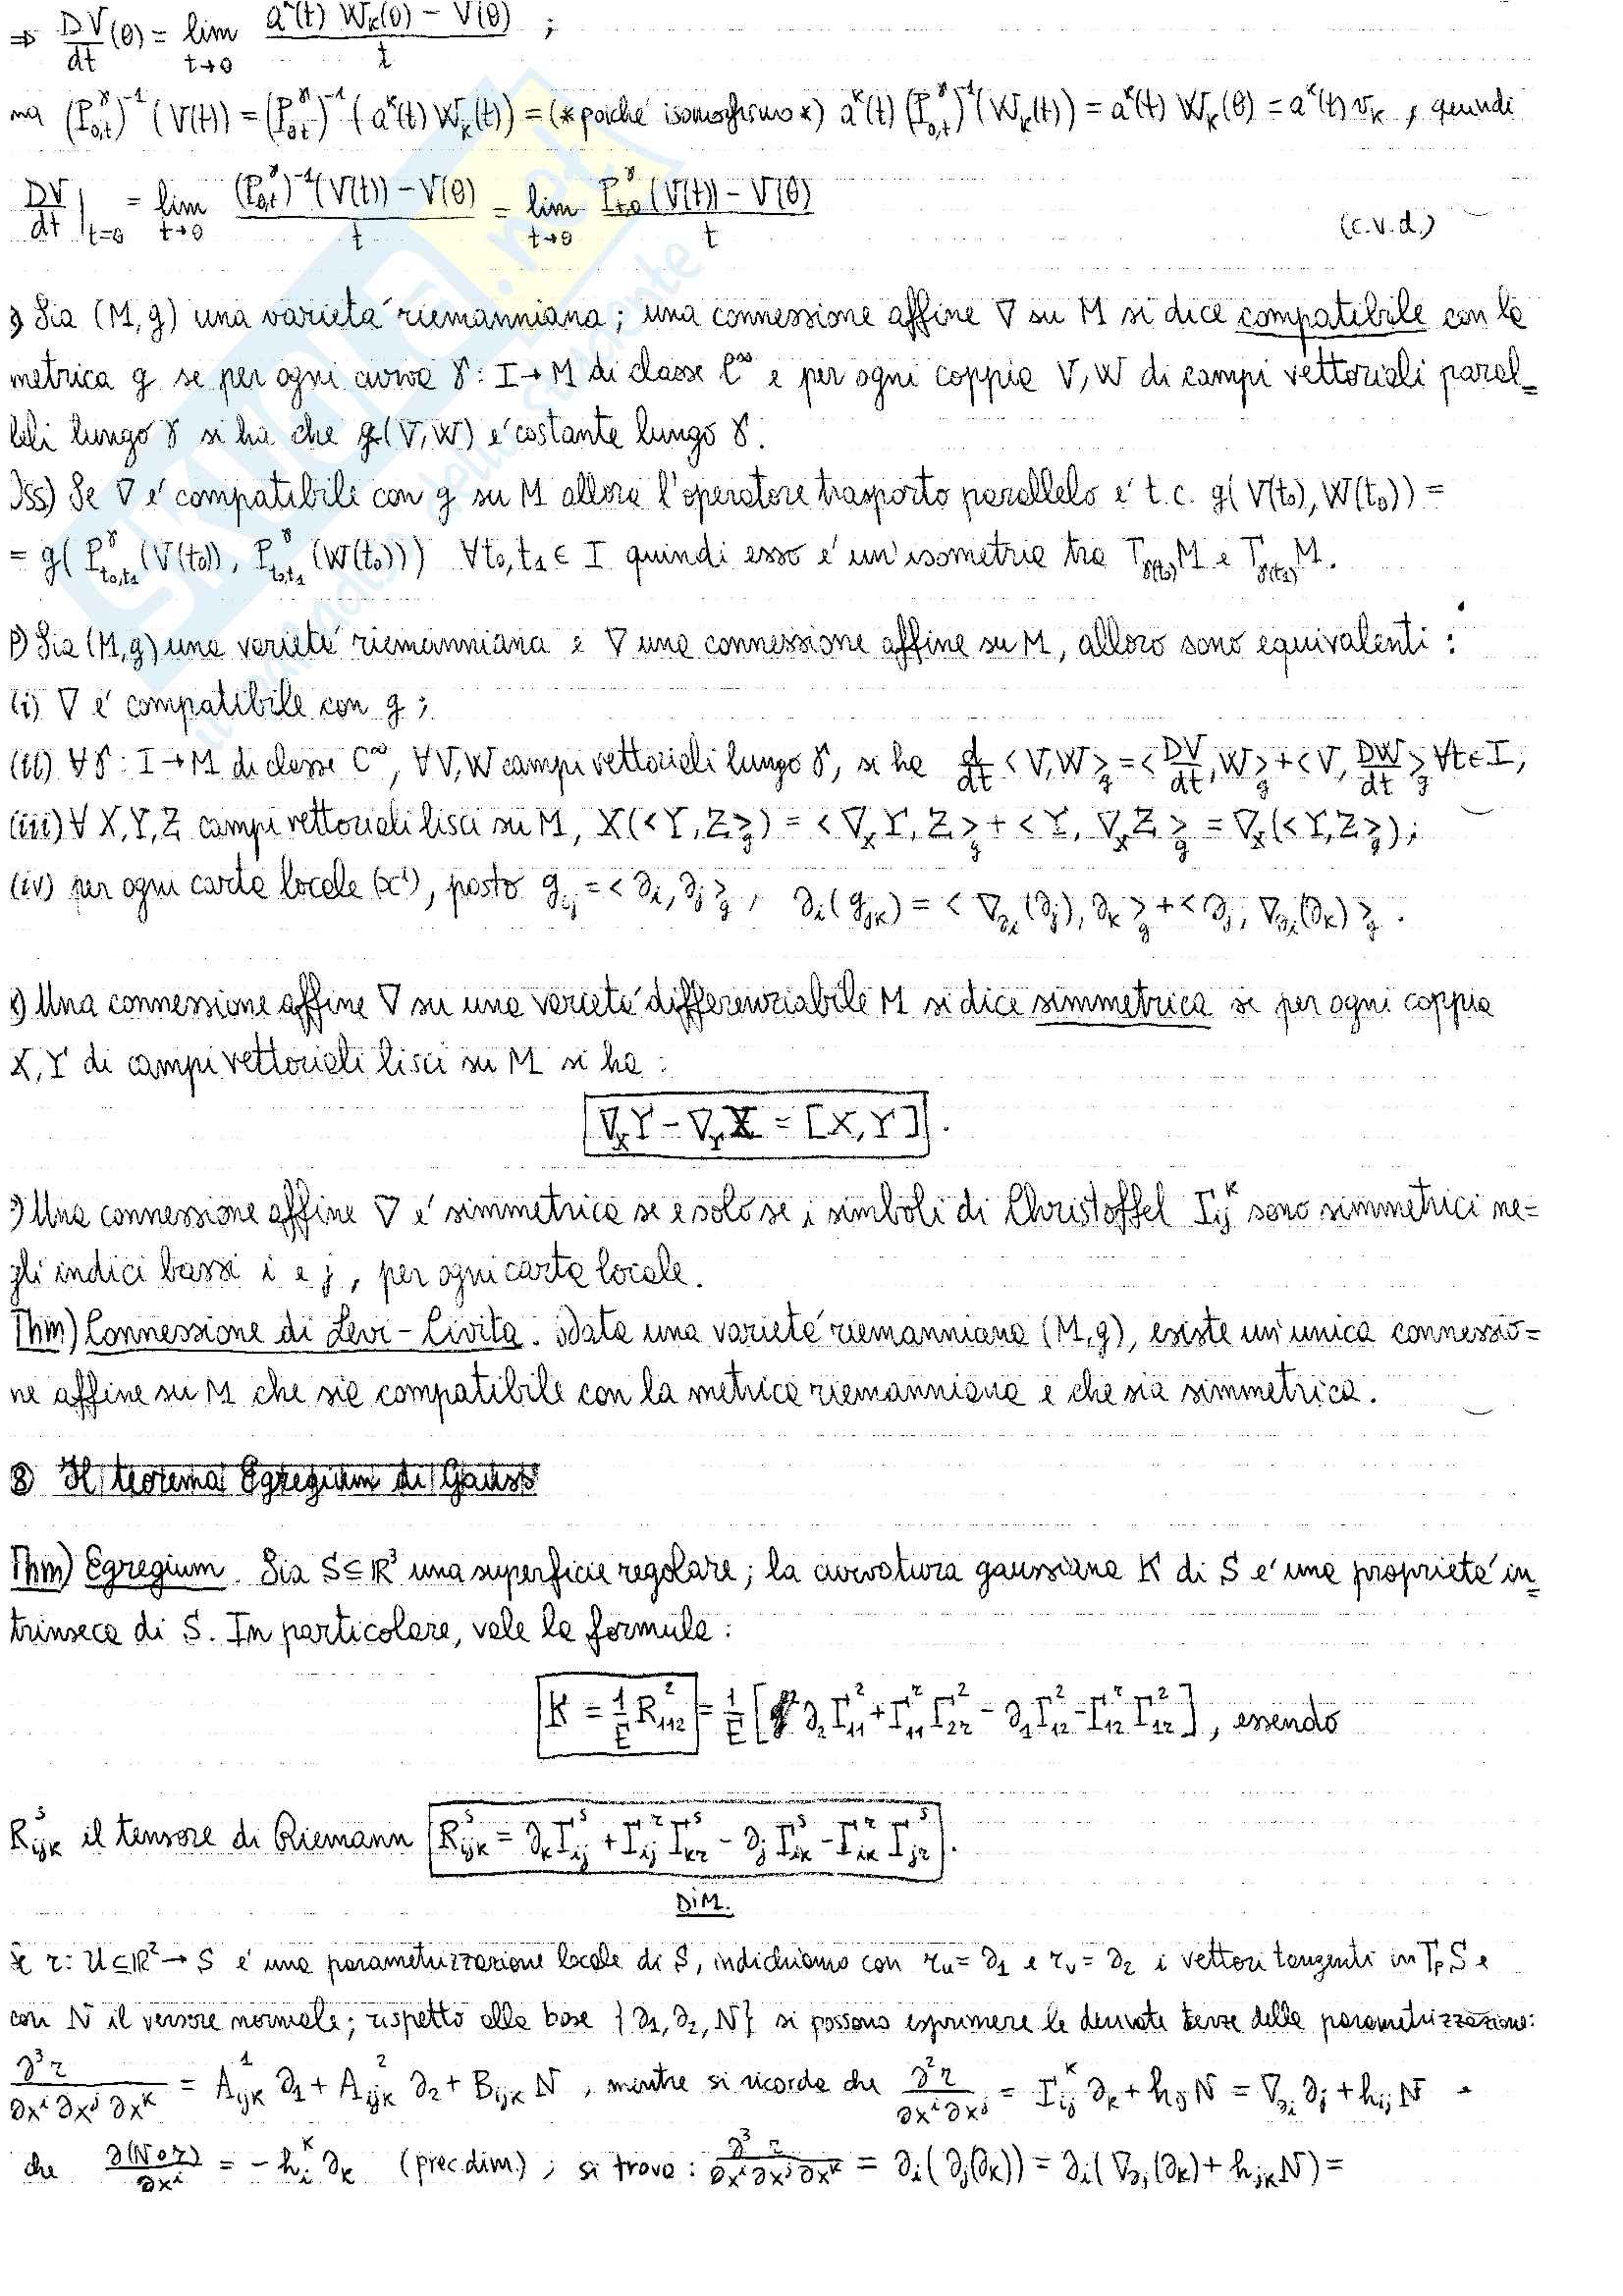 ⇒ DV/dt (0) = lim_{t→0} (a^k(t) W_k(0) − V(0))/t ;
ma (P^γ_{0,t})^{-1} (V(t)) = (P^γ_{0,t})^{-1} (a^k(t) W_k(t)) = (*poiché isomorfismo*) a^k(t) (P^γ_{0,t})^{-1} (W_k(t)) = a^k(t) W_k(0) = a^k(t) v_k , quindi
DV/dt |_{t=0} = lim_{t→0} ((P^γ_{0,t})^{-1}(V(t)) − V(0))/t = lim_{t→0} (P^γ_{t,0}(V(t)) − V(0))/t (c.v.d.)
) Sia (M, g) una varietá riemanniana; una connessione affine ∇ su M si dice compatibile con la
metrica g se per ogni curva γ : I → M di classe C^∞ e per ogni coppia V, W di campi vettoriali paral=
leli lungo γ si ha che g(V, W) é costante lungo γ.
Oss) Se ∇ é compatibile con g su M allora l'operatore trasporto parallelo é t.c. g( V(t₀), W(t₀) ) =
= g( P^γ_{t₀,t₁}(V(t₀)), P^γ_{t₀,t₁}(W(t₀)) ) ∀t₀, t₁ ∈ I quindi esso é un'isometria tra T_{γ(t₀)}M e T_{γ(t₁)}M.
P) Sia (M, g) una varietá riemanniana e ∇ una connessione affine su M, allora sono equivalenti :
(i) ∇ é compatibile con g ;
(ii) ∀ γ : I → M di classe C^∞, ∀ V, W campi vettoriali lungo γ, si ha d/dt <V, W>_g = <DV/dt, W>_g + <V, DW/dt>_g ∀t ∈ I;
(iii) ∀ X, Y, Z campi vettoriali lisci su M, X(<Y, Z>_g) = <∇_X Y, Z>_g + <Y, ∇_X Z>_g = ∇_X(<Y, Z>_g);
(iv) per ogni carta locale (x^i), posto g_{ij} = <∂_i, ∂_j>_g , ∂_i(g_{jk}) = <∇_{∂_i}(∂_j), ∂_k>_g + <∂_j, ∇_{∂_i}(∂_k)>_g .
) Una connessione affine ∇ su una varietá differenziabile M si dice simmetrica se per ogni coppia
X, Y di campi vettoriali lisci su M si ha :
∇_X Y − ∇_Y X = [X, Y] .
) Una connessione affine ∇ é simmetrica se e solo se i simboli di Christoffel Γ_{ij}^k sono simmetrici ne=
gli indici bassi i e j, per ogni carta locale.
Thm) Connessione di Levi-Civita. Data una varietá riemanniana (M, g), esiste un'unica connessio=
ne affine su M che sia compatibile con la metrica riemanniana e che sia simmetrica.
8) Il teorema Egregium di Gauss
Thm) Egregium. Sia S ⊆ ℝ³ una superficie regolare; la curvatura gaussiana K di S é una proprietá in=
trinseca di S. In particolare, vale la formula :
K = 1/E R_{112}^2 = 1/E [ ∂_2 Γ_{11}^2 + Γ_{11}^r Γ_{2r}^2 − ∂_1 Γ_{12}^2 − Γ_{12}^r Γ_{1r}^2 ] , essendo
R_{ijk}^s il tensore di Riemann R_{ijk}^s = ∂_k Γ_{ij}^s + Γ_{ij}^r Γ_{kr}^s − ∂_j Γ_{ik}^s − Γ_{ik}^r Γ_{jr}^s .
DIM.
Se r : U ⊆ ℝ² → S é una parametrizzazione locale di S, indichiamo con r_u = ∂_1 e r_v = ∂_2 i vettori tangenti in T_pS e
con N il versore normale; rispetto alla base {∂_1, ∂_2, N} si possono esprimere le derivate terze della parametrizzazione:
∂³r/∂x^i∂x^j∂x^k = A_{ijk}^1 ∂_1 + A_{ijk}^2 ∂_2 + B_{ijk} N , mentre si ricorda che ∂²r/∂x^i∂x^j = Γ_{ij}^k ∂_k + h_{ij} N = ∇_{∂_i} ∂_j + h_{ij} N
che ∂(N∘r)/∂x^i = − h_i^k ∂_k (prec. dim.) ; si trova : ∂³r/∂x^i∂x^j∂x^k = ∂_i(∂_j(∂_k)) = ∂_i(∇_{∂_j}(∂_k) + h_{jk} N) =